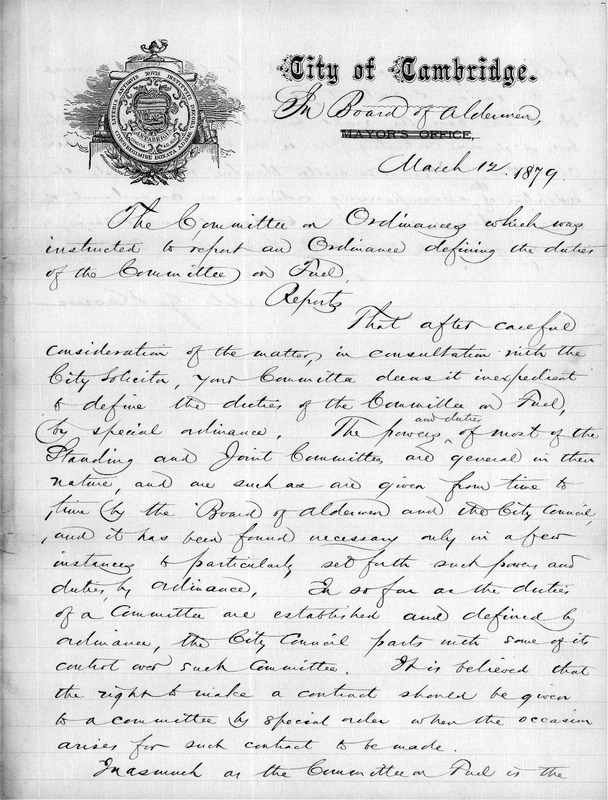 City of Cambridge.
In Board of Aldermen,
MAYOR'S OFFICE,
March 12. 1879.
LITERIS ANTIQUIS NOVIS INSTITUTIS DECORA
CANTABRIGIA
The Committee on Ordinances which was
instructed to report an Ordinance defining the duties
of the Committee on Fuel,
Reports
That after careful
consideration of the matter, in consultation with the
City Solicitor, your Committee deems it inexpedient
to define the duties of the Committee on Fuel,
by special ordinance. The powers and duties of most of the
Standing and Joint Committees are general in their
nature, and are such as are given from time to
time by the Board of Aldermen and the City Council,
and it has been found necessary only in a few
instances to particularly set forth such powers and
duties by ordinance. In so far as the duties
of a Committee are established and defined by
ordinance, the City Council parts with some of its
control over such Committee. It is believed that
the right to make a contract should be given
to a committee by special order when the occasion
arises for such contract to be made.
Inasmuch as the Committee on Fuel is the